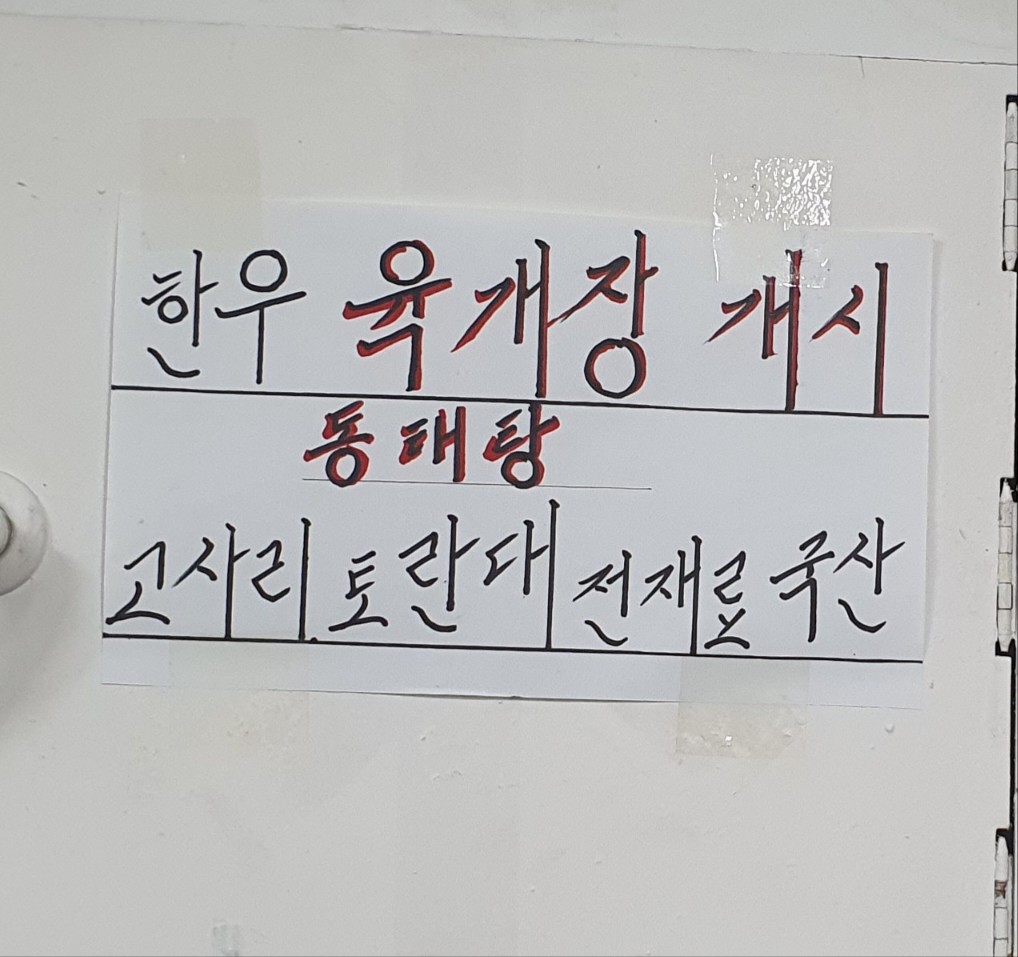 한우 육개장 개시
동태탕
고사리 토란대 전재료 국산